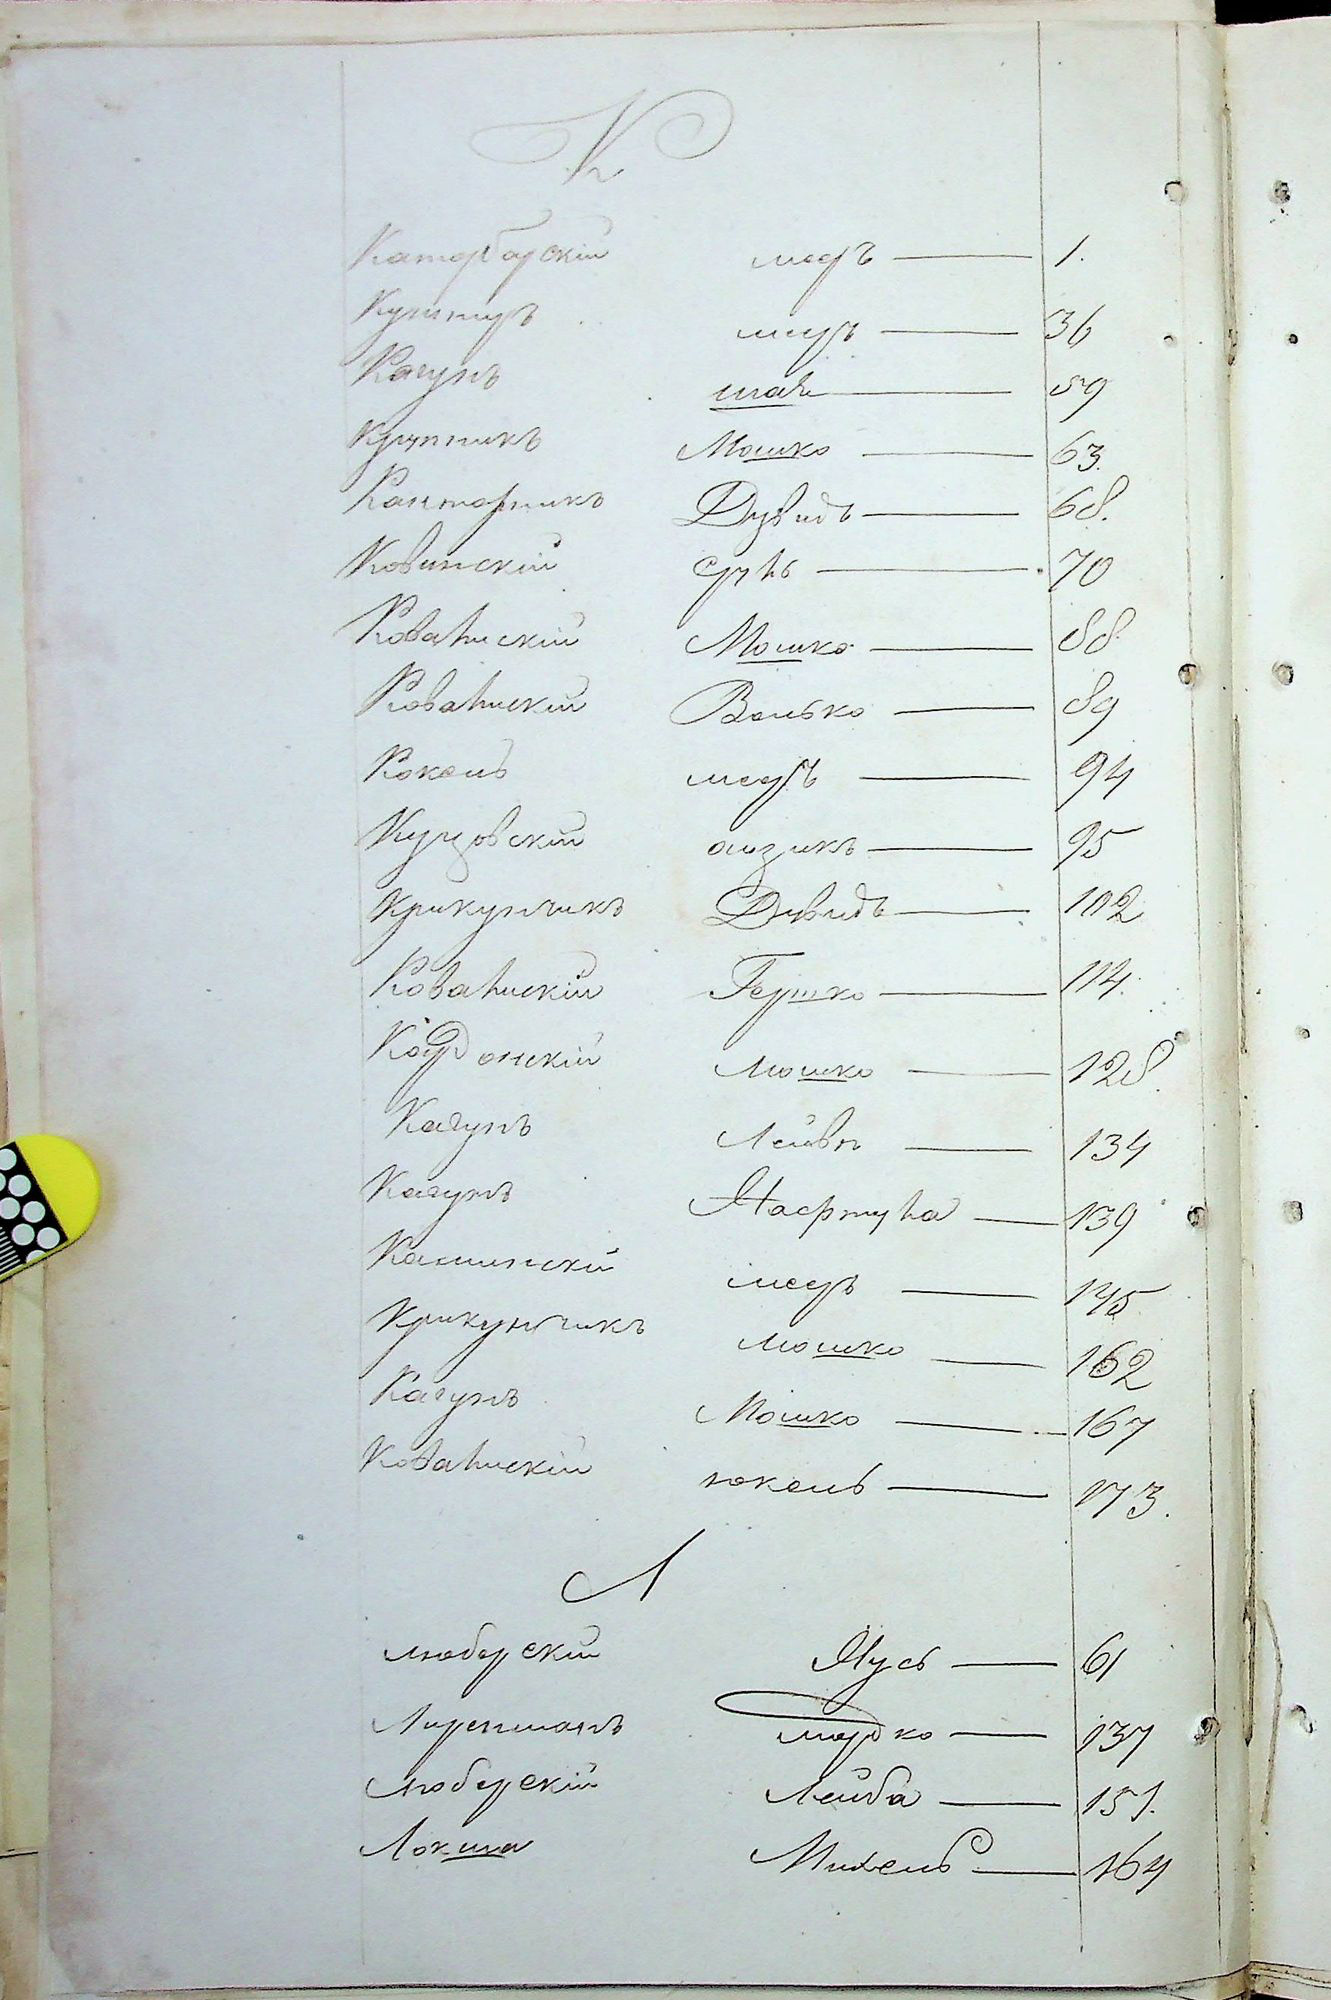 К
Каторбарскій меръ 1.
Кушниръ меръ 36
Кагунъ шая 59
Крупникъ Мошко 63.
Канторчикъ Дувидъ 68.
Ковинскій 70
Ковалискій Мошко 88
Ковалискій Волько 89
Кокель меръ 94
Куцовскій аизикъ 95
Крикунчикъ Дувидъ 102
Ковалискій Гершко 114.
Кордонскій Мошко 128.
Кагунъ Лейвы 134
Кагунъ 139
Каминскій меръ 145
Крикунчикъ мошко 162
Кагунъ Мошко 167
Ковалискій іокель 173.
Л
любарскій Нусь 61
Лиренманъ мордко 137
любарскій Лейба 151.
Локша Михель 164